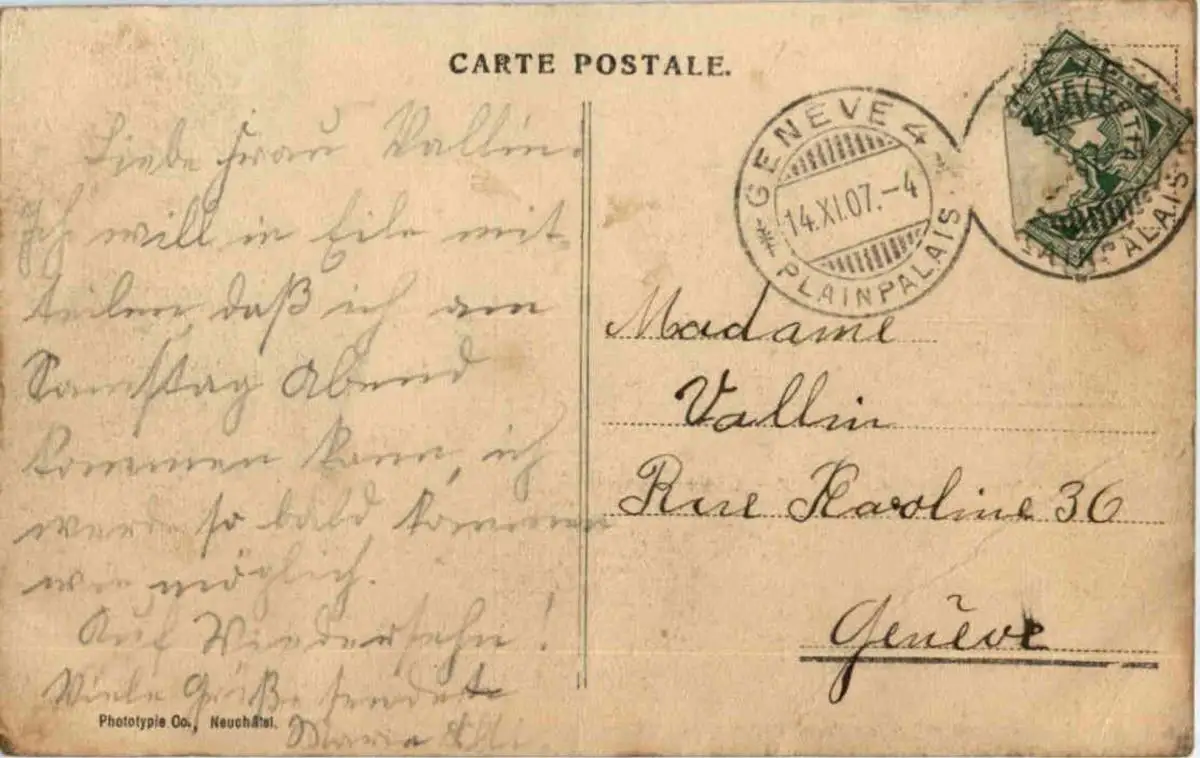 CARTE POSTALE.
Liebe Frau Vallin.
Ich will in Eile mit-
teilen, daß ich am
Samstag Abend
kommen kann, ich
werde so bald kommen
wie möglich.
Auf Wiedersehn!
Viele Grüße sendet
Maria
Phototypie Co., Neuchâtel.
GENÈVE 4
14.XI.07.-4
PLAINPALAIS
HELVETIA
GENÈVE 4
PLAINPALAIS
Madame
Vallin
Rue Karoline 36
Genève